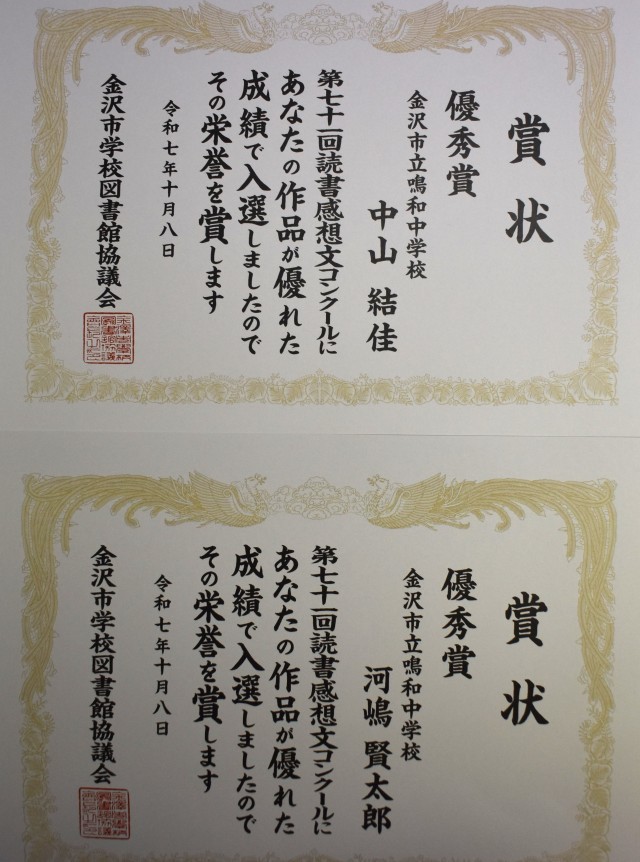 賞状
優秀賞
金沢市立鳴和中学校
中山 結佳
第七十一回読書感想文コンクールに
あなたの作品が優れた
成績で入選しましたので
その栄誉を賞します
令和七年十月八日
金沢市学校図書館協議会
賞状
優秀賞
金沢市立鳴和中学校
河嶋 賢太郎
第七十一回読書感想文コンクールに
あなたの作品が優れた
成績で入選しましたので
その栄誉を賞します
令和七年十月八日
金沢市学校図書館協議会